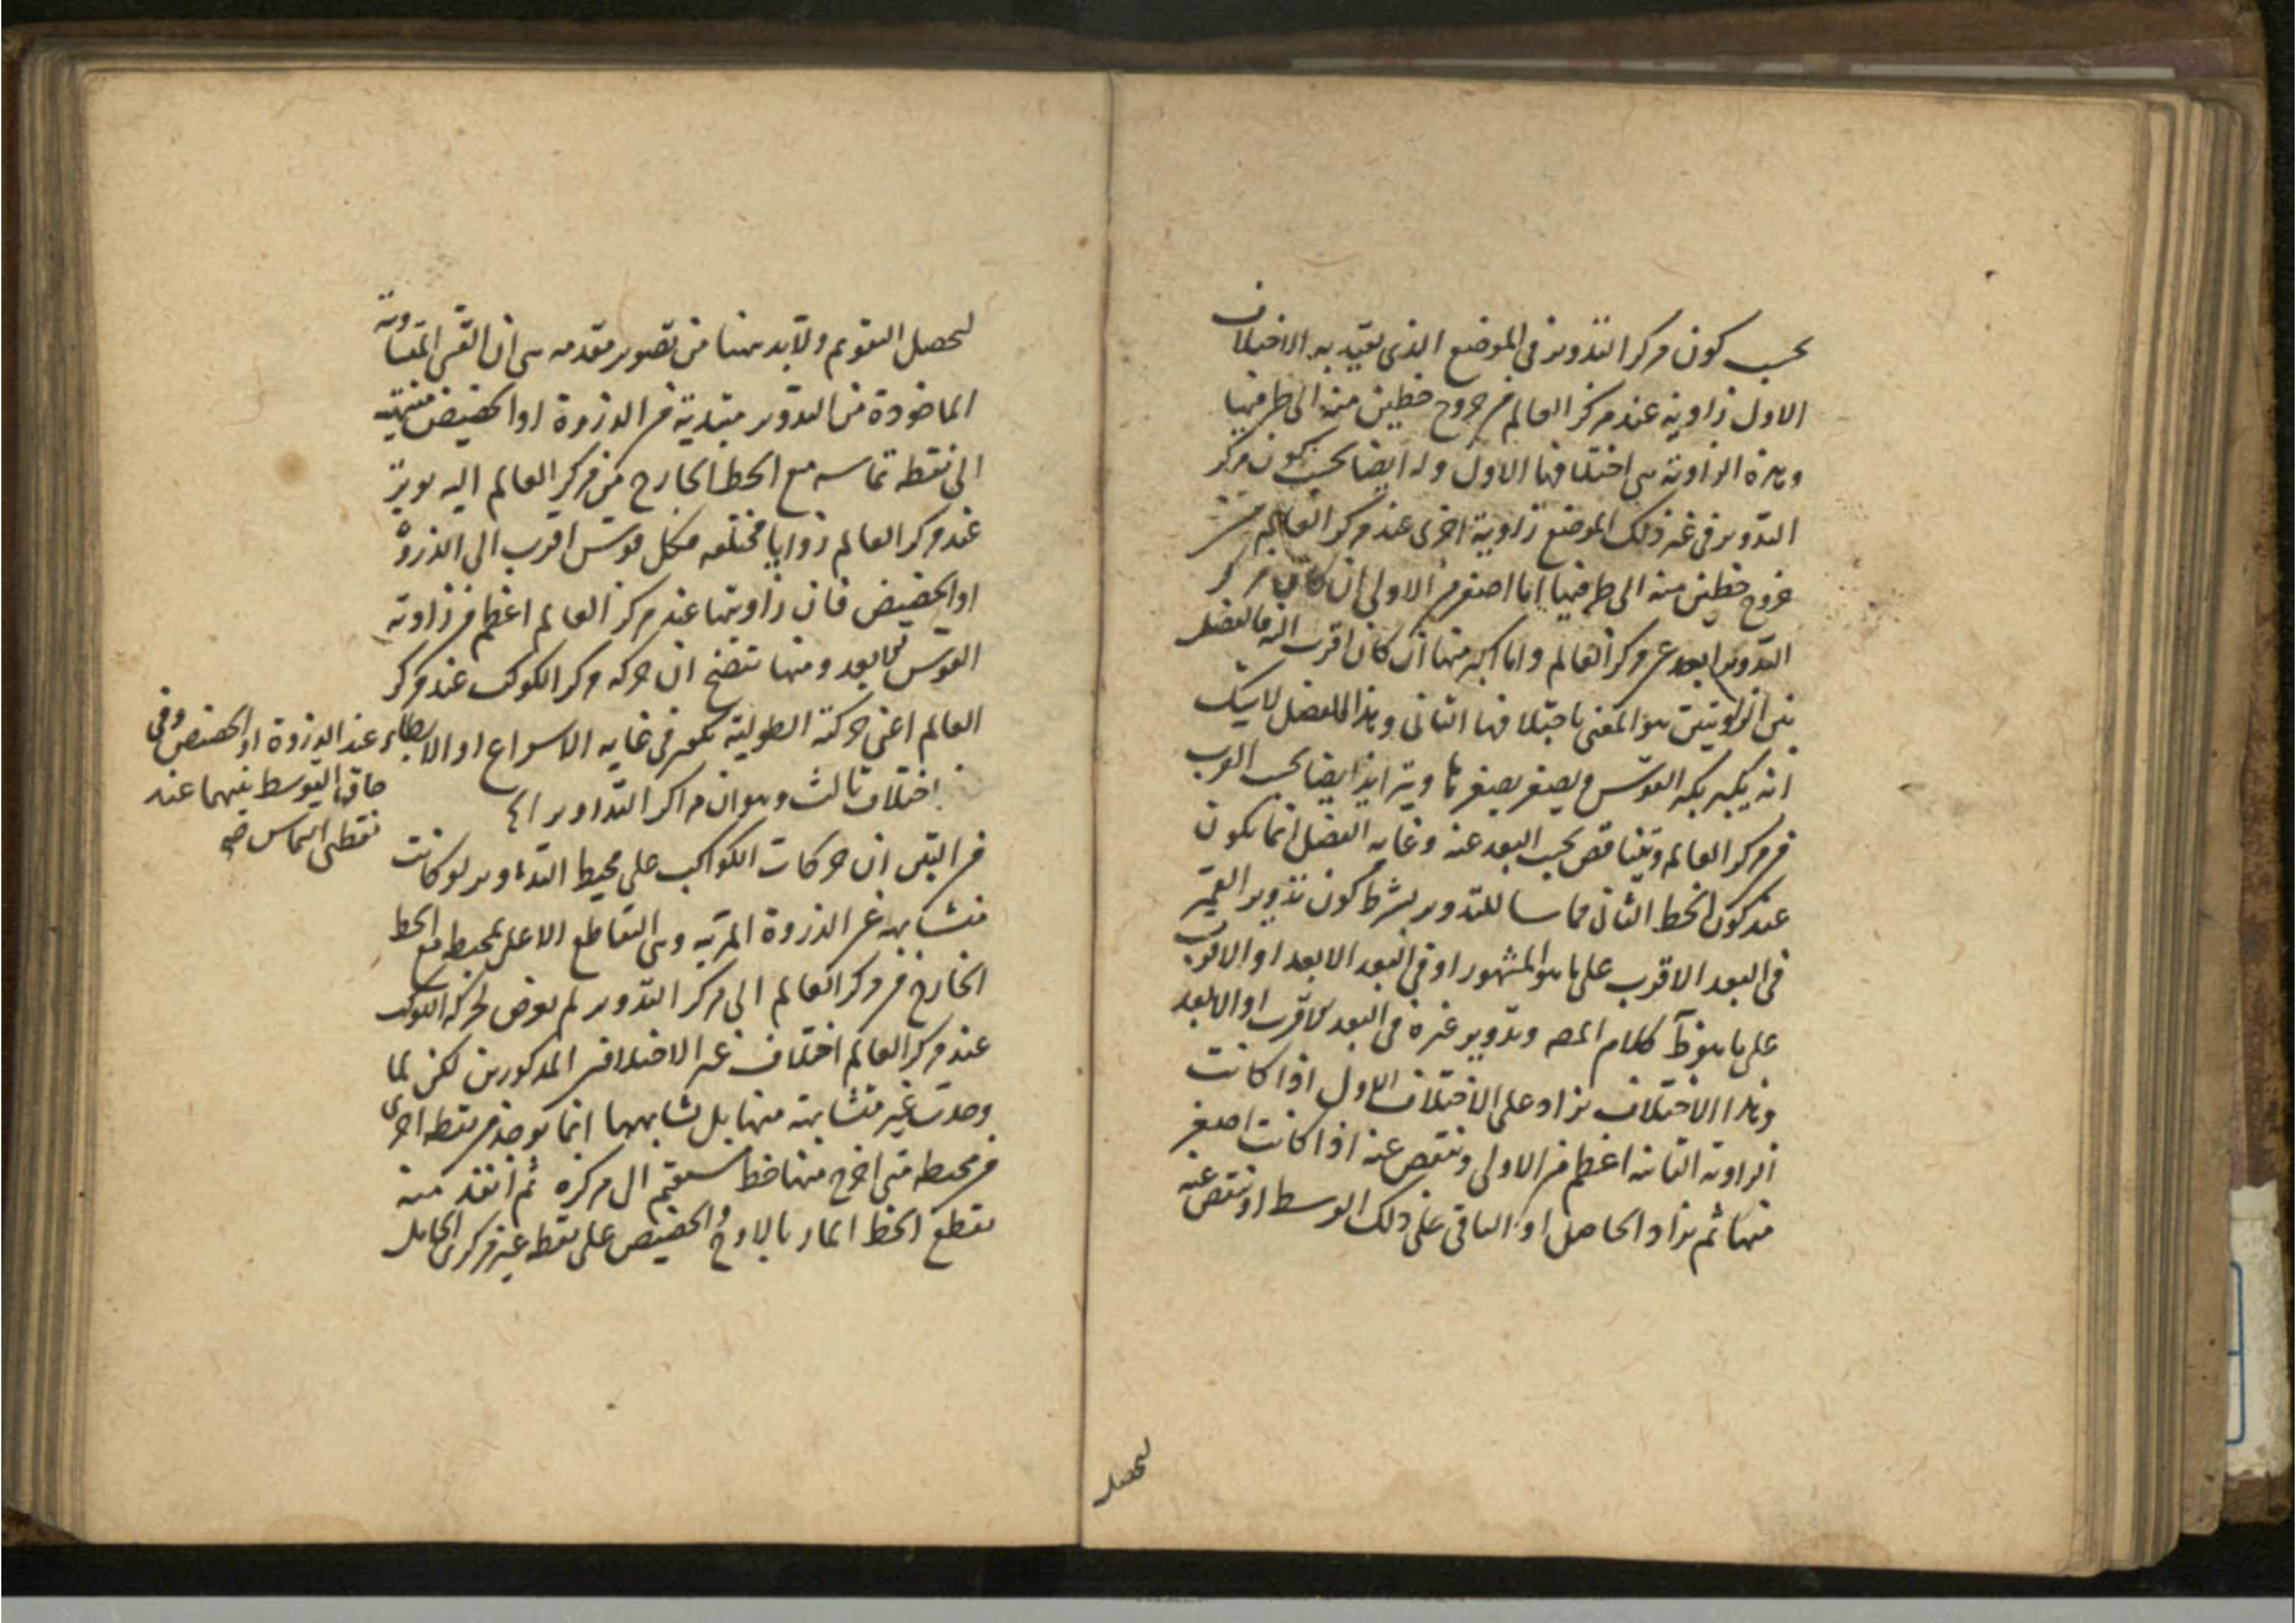 بحسب كون مركز التدوير في الموضع الذي تقيد به الاختلاف
الاول زاوية عند مركز العالم من خروج خطين منه الى طرفيها
وهذه الزاوية هى اختلافها الاول وله ايضا بحسب كون مركز
التدوير في غير ذلك الموضع زاوية اخرى عند مركز العالم من
خروج خطين منه الى طرفيها اما اصغر من الاولى ان كان مركز
التدوير ابعد عن مركز العالم واما اكبر منها ان كان اقرب اليه فالفضل
بين الزاويتين هو المعنى باختلافها الثانى وهذا الفضل لا شك
انه يكبر بكبر القوس ويصغر بصغرها ويتزايد ايضا بحسب القرب
من مركز العالم ويتناقص بحسب البعد عنه وغاية الفضل انما يكون
عند كون الخط الثانى مماسا للتدوير بشرط كون تدوير القمر
في البعد الاقرب على ما هو المشهور او في البعد الابعد او الاقرب
على ما هو ظ كلام المص وتدوير غيره في البعد الاقرب او الابعد
وهذا الاختلاف يزاد على الاختلاف الاول اذا كانت
الزاوية الثانية اعظم من الاولى وينقص عنه اذا كانت اصغر
منها ثم يزاد الحاصل او الباقى على ذلك الوسط او ينقص عنه
ليحصل
ليحصل التقويم ولا بد ههنا من تصوير مقدمه هى ان القسى المتساوية
الماخوذة من التدوير مبتدية من الذروة او الحضيض منتهية
الى نقطة تماسه مع الخط الخارج من مركز العالم اليه يوتر
عند مركز العالم زوايا مختلفه فكل قوس اقرب الى الذروة
او الحضيض فان زاويتها عند مركز العالم اعظم من زاوية
القوس الابعد ومنها يتضح ان حركة مركز الكوكب عند مركز
العالم اعنى حركته الطولية تكون في غاية الاسراع او الابطاء عند الذروة او الحضيض وفي
حاق التوسط بينهما عند
نقطتى التماس
اختلاف ثالث وهو ان مراكز التداوير
من البين ان حركات الكواكب على محيط التداوير لو كانت
متشابهة عن الذروة المرئيه وهى التقاطع الاعلى لمحيطه مع الخط
الخارج من مركز العالم الى مركز التدوير لم يعرض لحركة الكوكب
عند مركز العالم اختلاف غير الاختلافين المذكورين لكن لما
وجدت غير متشابهة منها بل تشابهها انما يوجد من نقطه اخرى
من محيطه متى اخرج منها خط مستقيم الى مركزه ثم انفذ منه
تقطع الخط المار بالاوج والحضيض على نقطه غير مركزى الحامل